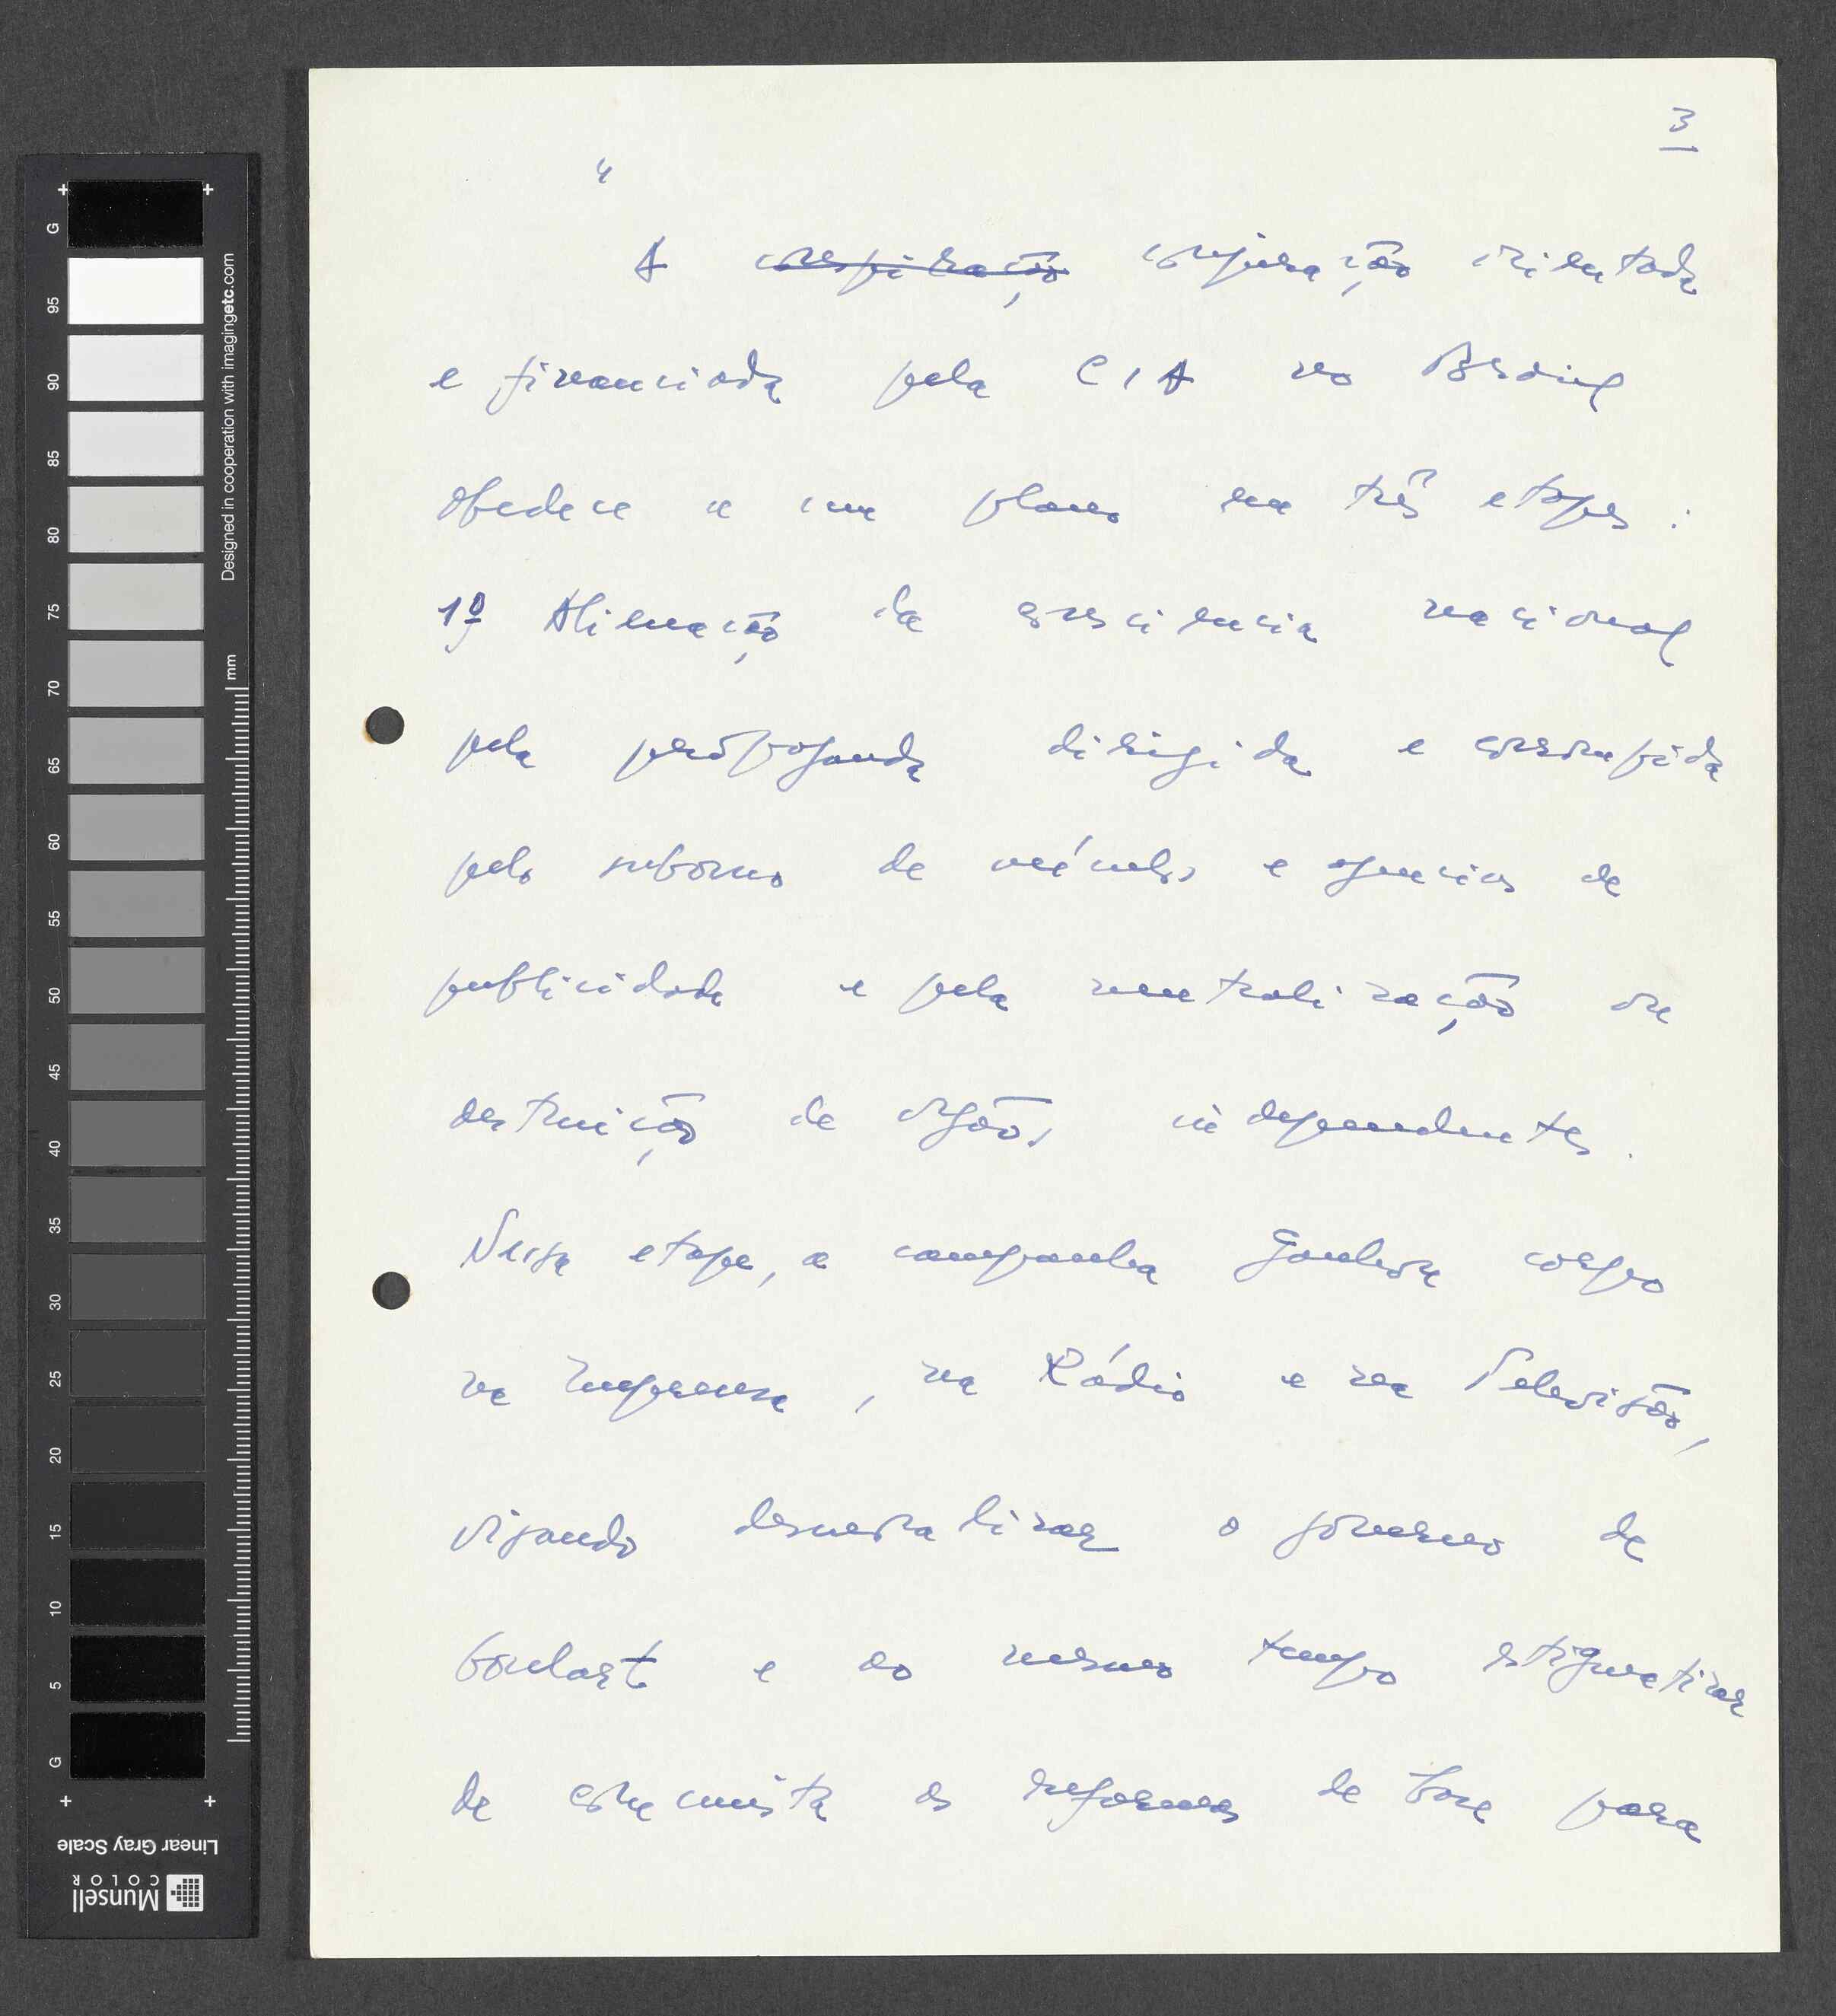 3
"
A conspiração conjuração orientada
e financiada pela CIA no Brasil
obedece a um plano em três etapas :
1º Alienação da consciencia nacional
pela propaganda dirigida e corrompida
pelo suborno de veículos e agencias de
publicidade e pela neutralização ou
destruição de orgãos independentes.
Nessa etapa, a campanha ganhou corpo
na Imprensa, na Rádio e na Televisão,
visando desmoralizar o governo de
Goulart e ao mesmo tempo estigmatizar
de comunista as reformas de base para
G 95 90 85 80 75 70 65 60 55 50 45 40 35 30 25 20 15 10 5 G
mm
Designed in cooperation with imagingetc.com
Linear Gray Scale
Munsell
COLOR